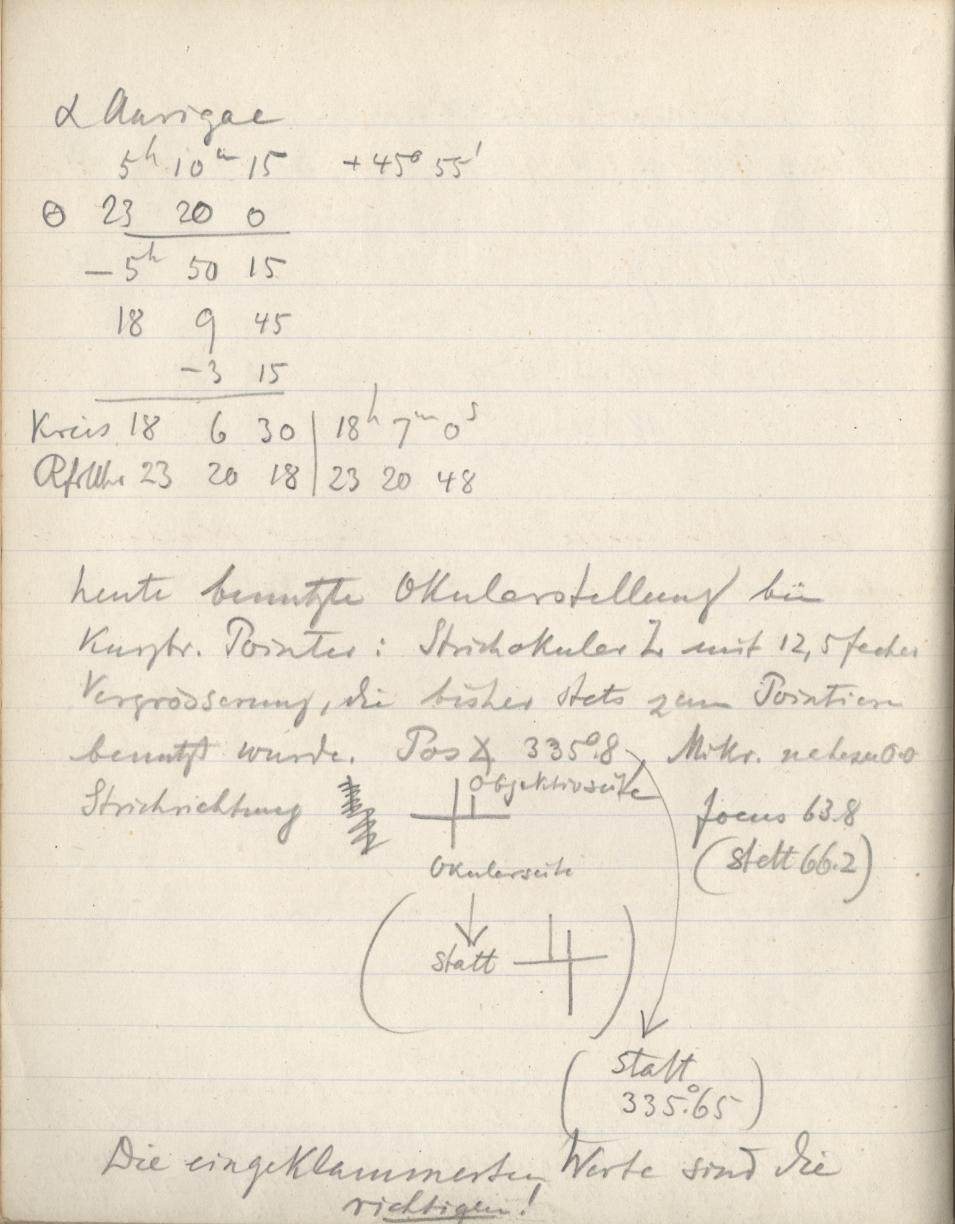 α Aurigae
5h 10m 15 +45° 55'
Θ 23 20 0
— 5h 50 15
18 9 45
-3 15
Kreis 18 6 30 | 18h 7m 0s
RfrUhr 23 20 18 | 23 20 48
heute benutzte Okularstellung bei
Kurzbr. Pointer: Strichokular mit 12,5 facher
Vergrösserung, die bisher stets zum Pointieren
benutzt wurde. Pos ∡ 335°.8, Mikr. nahezu 0.0
Strichrichtung Objektivseite focus 63.8
Okularseite (statt 66.2)
(statt)
(statt
335°.65)
Die eingeklammerten Werte sind die
richtigen!